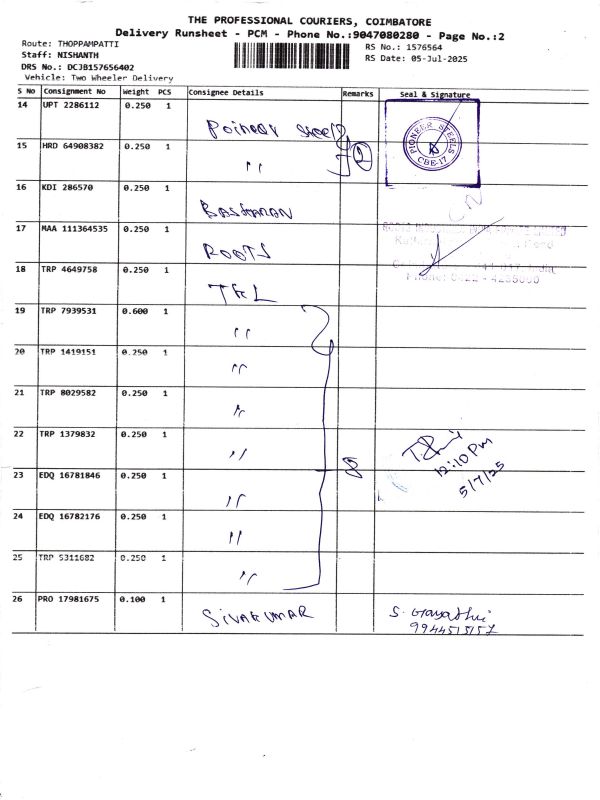 THE PROFESSIONAL COURIERS, COIMBATORE
Delivery Runsheet - PCM - Phone No.:9047080280 - Page No.:2
Route: THOPPAMPATTI
Staff: NISHANTH
DRS No.: DCJB157656402
Vehicle: Two Wheeler Delivery
RS No.: 1576564
RS Date: 05-Jul-2025
S No Consignment No Weight PCS Consignee Details Remarks Seal & Signature
14 UPT 2286112 0.250 1 Poineer steel
PIONEER STEELS
CBE-17
15 HRD 64908382 0.250 1 " 2
16 KDI 286570 0.250 1 BASKARAN
17 MAA 111364535 0.250 1 ROOTS
18 TRP 4649758 0.250 1 TKL
19 TRP 7939531 0.600 1 "
20 TRP 1419151 0.250 1 "
21 TRP 8029582 0.250 1 "
22 TRP 1379832 0.250 1 "
12:10 Pm
5/7/25
23 EDQ 16781846 0.250 1 " 8
24 EDQ 16782176 0.250 1 "
25 TRP 5311682 0.250 1 "
26 PRO 17981675 0.100 1 SIVAKUMAR S. Gayathri
9944515157